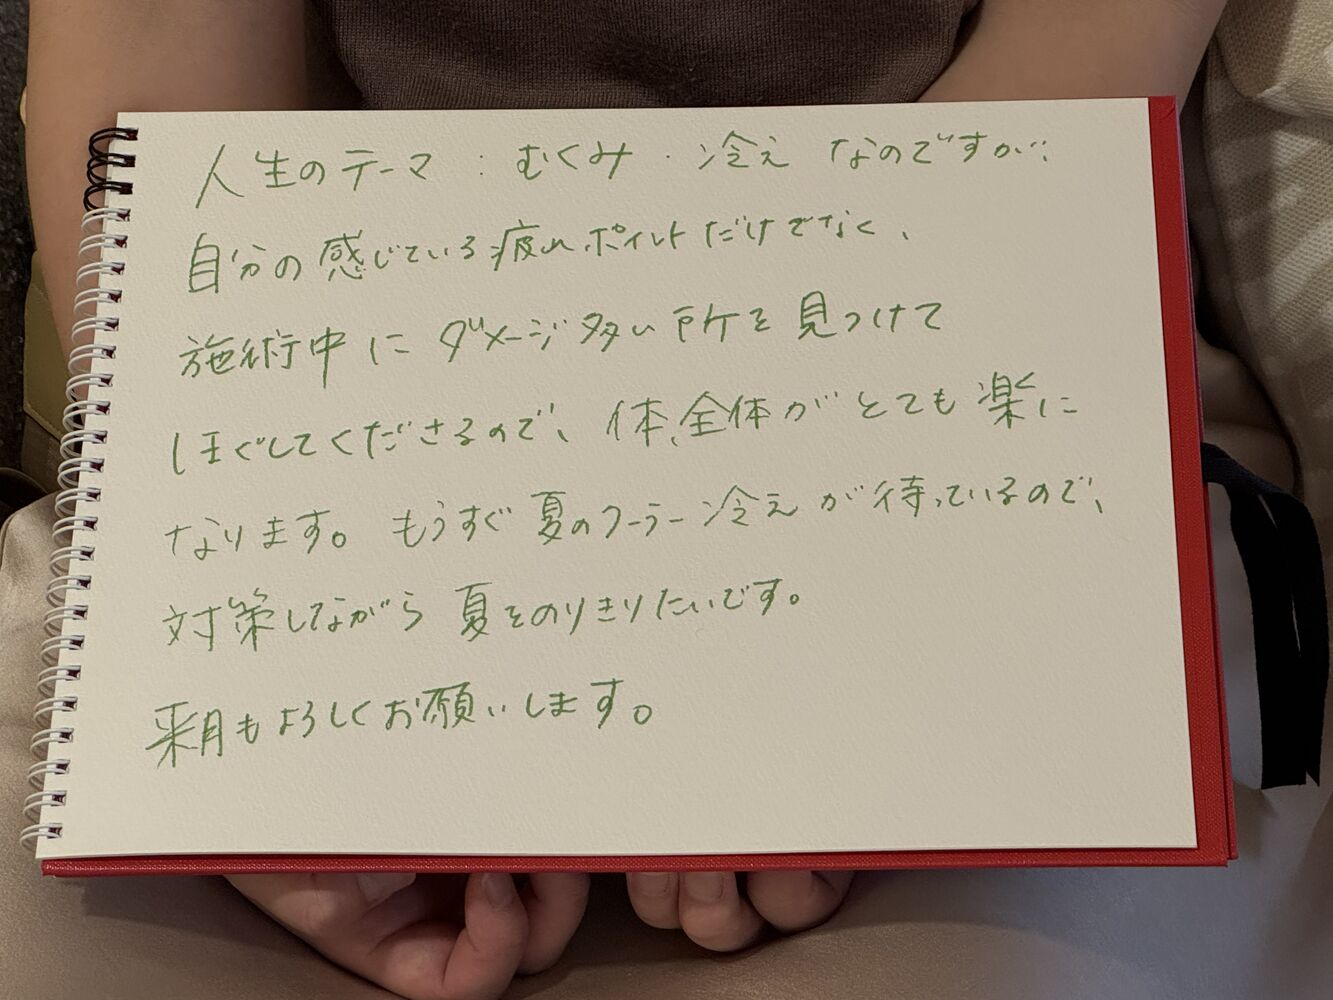 人生のテーマ：むくみ・冷え なのですが、
自分の感じている疲れポイントだけでなく、
施術中に ダメージ多い所を見つけて
ほぐしてくださるので、体、全体がとても楽に
なります。もうすぐ夏のクーラー冷えが待っているので、
対策しながら夏をのりきりたいです。
来月もよろしくお願いします。